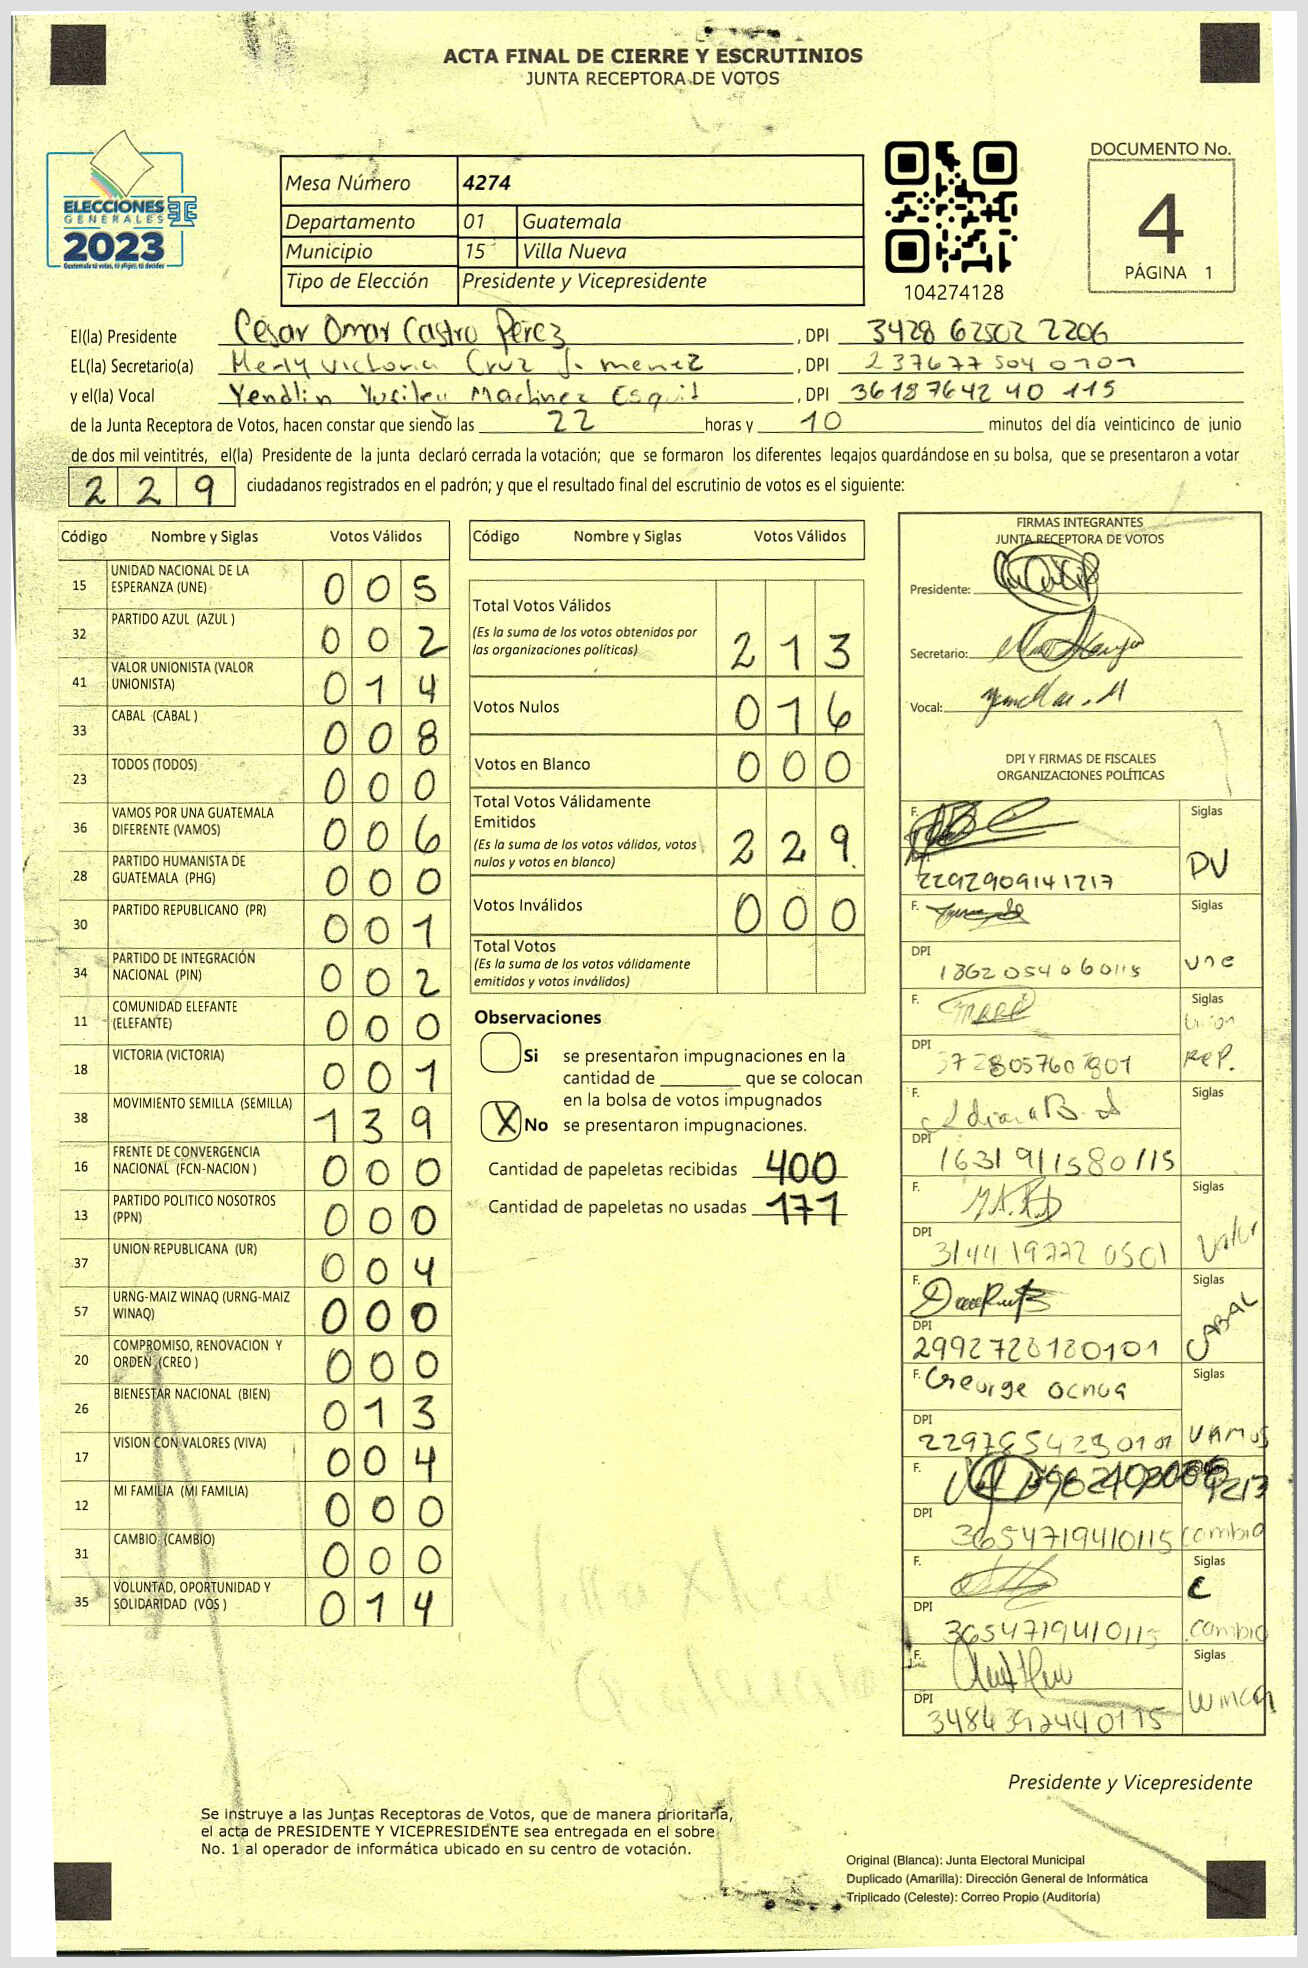 ACTA FINAL DE CIERRE Y ESCRUTINIOS
JUNTA RECEPTORA DE VOTOS
ELECCIONES
GENERALES
2023
Guatemala tú votas, tú eliges, tú decides
Mesa Número 4274
Departamento 01 Guatemala
Municipio 15 Villa Nueva
Tipo de Elección Presidente y Vicepresidente
104274128
DOCUMENTO No.
4
PÁGINA 1
El(la) Presidente Cesar Omar Castro Perez , DPI 3428 62502 2206
EL(la) Secretario(a) Victoria Cruz Jimenez , DPI 237677504 0101
y el(la) Vocal Yendlin Martinez Esquit , DPI 3618764240 115
de la Junta Receptora de Votos, hacen constar que siendo las 22 horas y 10 minutos del día veinticinco de junio
de dos mil veintitrés, el(la) Presidente de la junta declaró cerrada la votación; que se formaron los diferentes legajos guardándose en su bolsa, que se presentaron a votar
229 ciudadanos registrados en el padrón; y que el resultado final del escrutinio de votos es el siguiente:
Código Nombre y Siglas Votos Válidos
15 UNIDAD NACIONAL DE LA ESPERANZA (UNE) 005
32 PARTIDO AZUL (AZUL ) 002
41 VALOR UNIONISTA (VALOR UNIONISTA) 014
33 CABAL (CABAL ) 008
23 TODOS (TODOS) 000
36 VAMOS POR UNA GUATEMALA DIFERENTE (VAMOS) 006
28 PARTIDO HUMANISTA DE GUATEMALA (PHG) 000
30 PARTIDO REPUBLICANO (PR) 001
34 PARTIDO DE INTEGRACIÓN NACIONAL (PIN) 002
11 COMUNIDAD ELEFANTE (ELEFANTE) 000
18 VICTORIA (VICTORIA) 001
38 MOVIMIENTO SEMILLA (SEMILLA) 139
16 FRENTE DE CONVERGENCIA NACIONAL (FCN-NACION ) 000
13 PARTIDO POLITICO NOSOTROS (PPN) 000
37 UNION REPUBLICANA (UR) 004
57 URNG-MAIZ WINAQ (URNG-MAIZ WINAQ) 000
20 COMPROMISO, RENOVACION Y ORDEN (CREO ) 000
26 BIENESTAR NACIONAL (BIEN) 013
17 VISION CON VALORES (VIVA) 004
12 MI FAMILIA (MI FAMILIA) 000
31 CAMBIO (CAMBIO) 000
35 VOLUNTAD, OPORTUNIDAD Y SOLIDARIDAD (VOS ) 014
Código Nombre y Siglas Votos Válidos
Total Votos Válidos 213
(Es la suma de los votos obtenidos por
las organizaciones políticas)
Votos Nulos 016
Votos en Blanco 000
Total Votos Válidamente
Emitidos 229
(Es la suma de los votos válidos, votos
nulos y votos en blanco)
Votos Inválidos 000
Total Votos
(Es la suma de los votos válidamente
emitidos y votos inválidos)
Observaciones
Si se presentaron impugnaciones en la
cantidad de ________ que se colocan
en la bolsa de votos impugnados
X No se presentaron impugnaciones.
Cantidad de papeletas recibidas 400
Cantidad de papeletas no usadas 171
FIRMAS INTEGRANTES
JUNTA RECEPTORA DE VOTOS
Presidente:
Secretario:
Vocal:
DPI Y FIRMAS DE FISCALES
ORGANIZACIONES POLÍTICAS
F. Siglas
DPI 2292909141217 PV
F. Siglas
DPI 1862054060115 une
F. Siglas
DPI 3728057607801 Union Rep.
F. Siglas
DPI 1631911580115
F. Siglas
DPI 3144197720501 Valor
F. Siglas
DPI 2992728120101 CABAL
F. George Ochoa Siglas
DPI 2297854230101 VAMOS
F.
DPI 3654719410115 cambio
F. Siglas
DPI 3654719410115 cambio
F. Siglas
DPI 3484392440115 Winaq
Presidente y Vicepresidente
Se instruye a las Juntas Receptoras de Votos, que de manera prioritaria,
el acta de PRESIDENTE Y VICEPRESIDENTE sea entregada en el sobre
No. 1 al operador de informática ubicado en su centro de votación.
Original (Blanca): Junta Electoral Municipal
Duplicado (Amarilla): Dirección General de Informática
Triplicado (Celeste): Correo Propio (Auditoría)